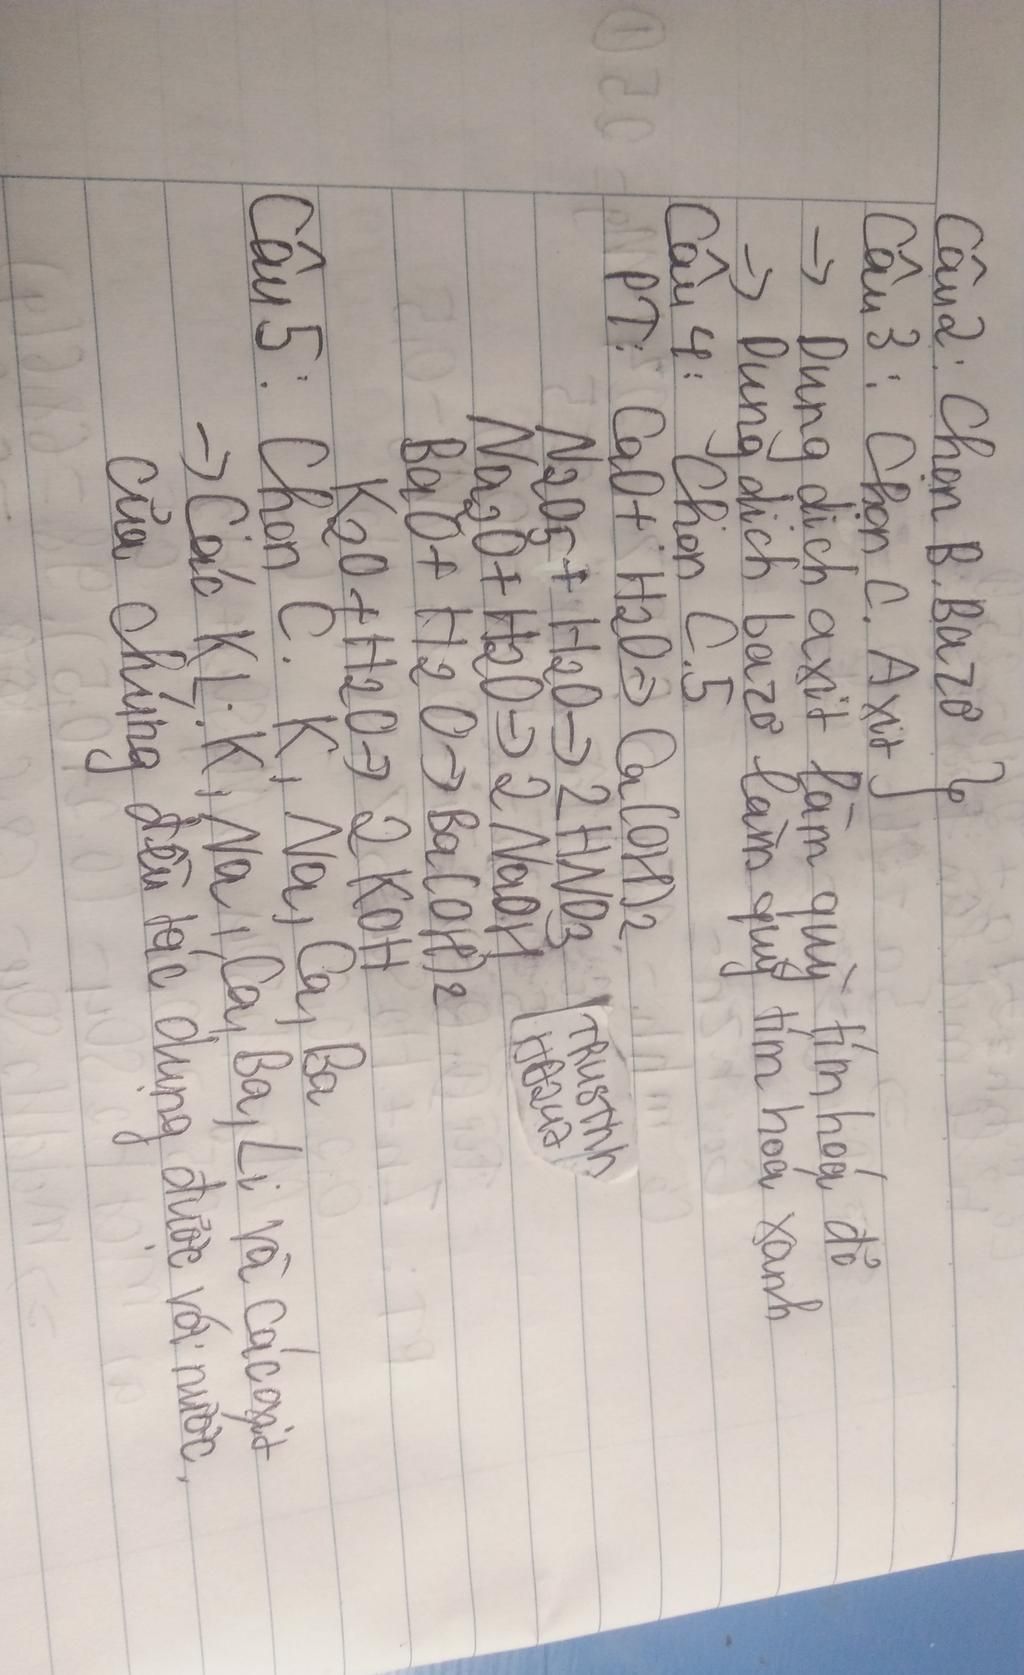 Câu 2: Chọn B. Bazơ
Câu 3: Chọn C. Axit }
→ Dung dịch axit làm quỳ tím hóa đỏ
→ Dung dịch bazơ làm quỳ tím hoá xanh
Câu 4: Chọn C. 5
PT: CaO + H2O → Ca(OH)2
N2O5 + H2O → 2HNO3
Na2O + H2O → 2NaOH
BaO + H2O → Ba(OH)2
K2O + H2O → 2KOH
TRUSTNh
Câu 5: Chọn C. K, Na, Ca, Ba
→ Các KL: K, Na, Ca, Ba, Li và các oxit
của chúng đều tác dụng được với nước.